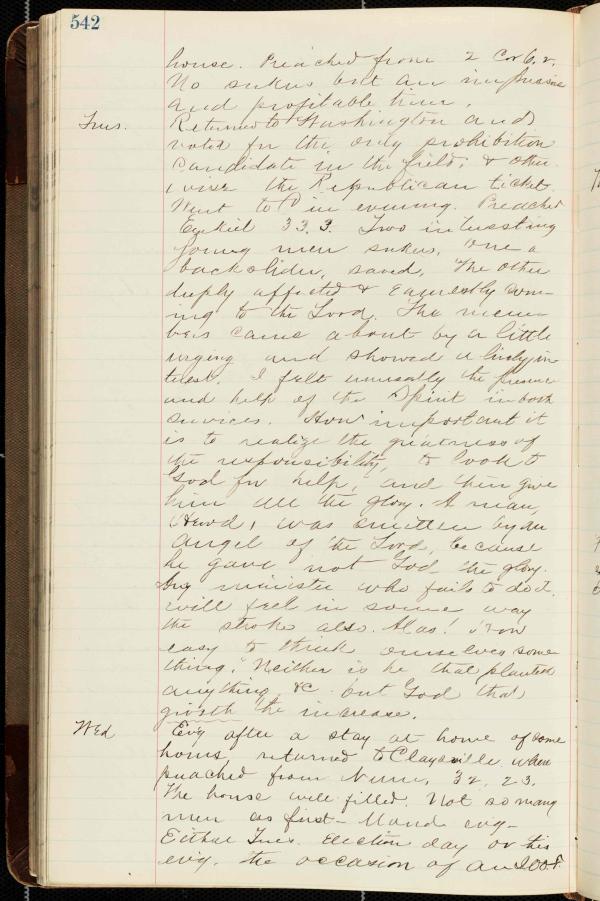 542
house. Preached from 2 Cor 6.2.
No seekers but an impressive
and profitable time.
Tues. Returned to Washington and
voted for the only prohibition
candidate in the field, & other
wise the Republican ticket.
Went to P in evening. Preached
Ezekiel 33.3. Two interesting
young men seekers, one a
backslider, saved, The other
deeply affected & earnestly com-
ing to the Lord. The mem-
bers came about by a little
urging and showed a lively in-
terest. I felt unusually the presence
and help of the Spirit in both
services. How important it
is to realize the greatness of
the responsibility, to look to
God for help, and then give
him all the glory. A man,
Herod, was smitten by an
angel of the Lord, because
he gave not God the glory.
Any minister who fails to do it,
will feel in some way
the stroke also. Alas! how
easy to think ourselves some
thing. "Neither is he that planteth
anything &c but God that
giveth the increase.
Wed Evg after a stay at home of some
hours, returned to Claysville where
preached from Num. 32.23.
The house well filled. Not so many
men as first - Mond evg -
Either Tues. Election day or this
evg. the occasion of an